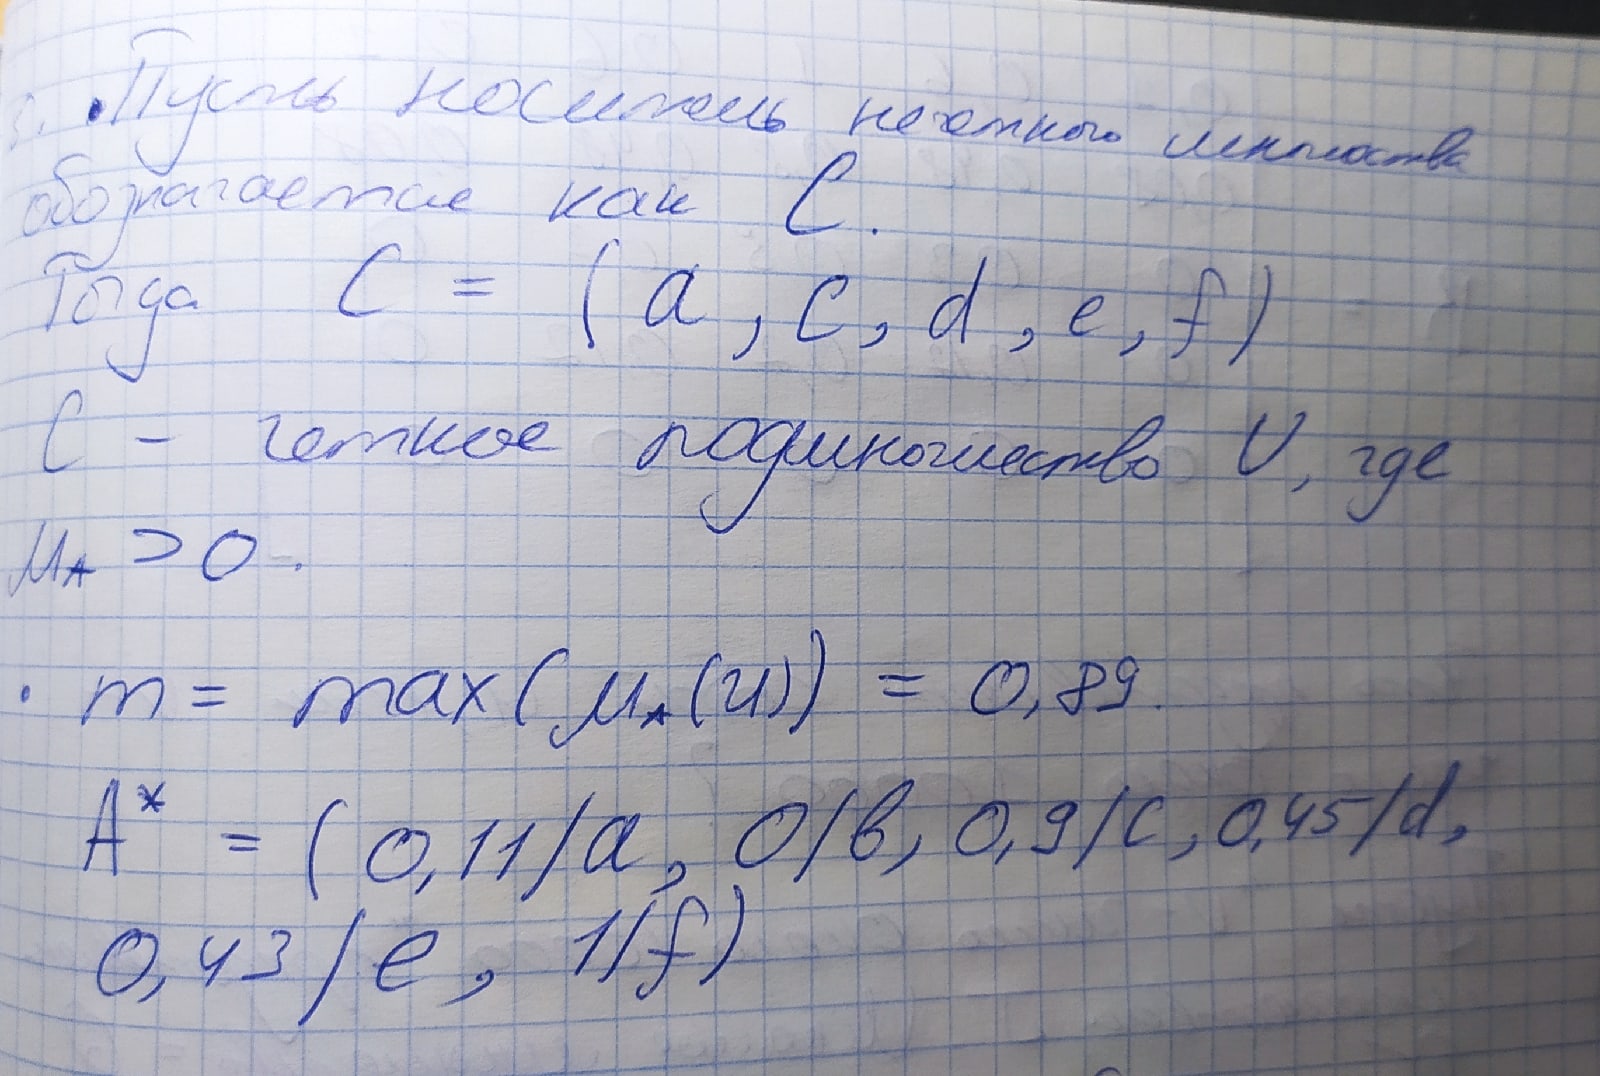 3. • Пусть носитель нечеткого множества
обозначается как C.
Тогда C = (a, c, d, e, f)
C - четкое подмножество U, где
μA > 0.
• m = max(μA(u)) = 0,89.
A* = (0,11/a, 0/b, 0,9/c, 0,45/d,
0,43/e, 1/f)